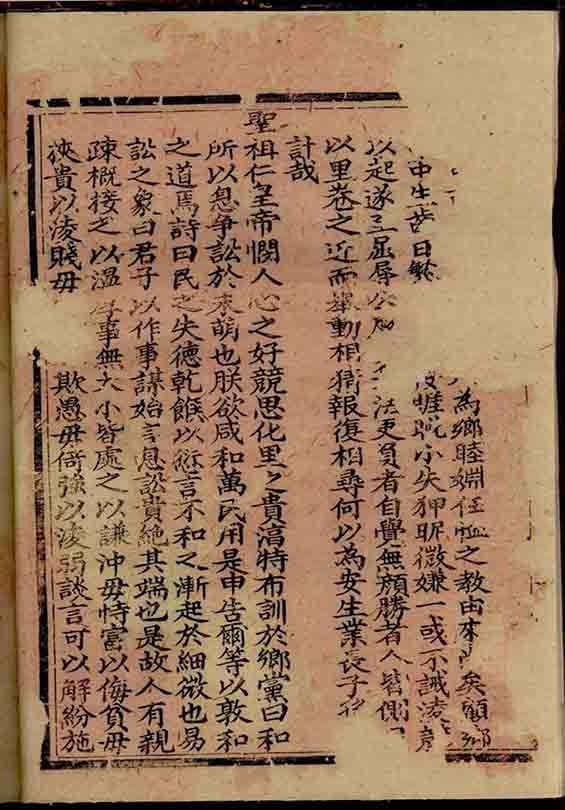 為鄉睦婣任恤之教由來尚矣顧鄉
中生齒日繁 睚眦小失狎昵微嫌一或不誡凌競
以起遂至屈辱公 法吏負者自覺無顔勝者人皆側
以里巷之近而舉動相猜報復相尋何以為安生業長子孫
計哉
聖祖仁皇帝憫人心之好競思化里之貴湻特布訓於鄉黨曰和
所以息争訟於未萌也朕欲咸和萬民用是申告爾等以敦和
之道焉詩曰民之失德乾餱以愆言不和之漸起於細微也易
訟之象曰君子以作事謀始言息訟貴絶其端也是故人有親
疎概接之以温厚事無大小皆處之以謙沖毋恃富以侮貧毋
挾貴以凌賤毋 欺愚毋倚強以凌弱談言可以解紛施